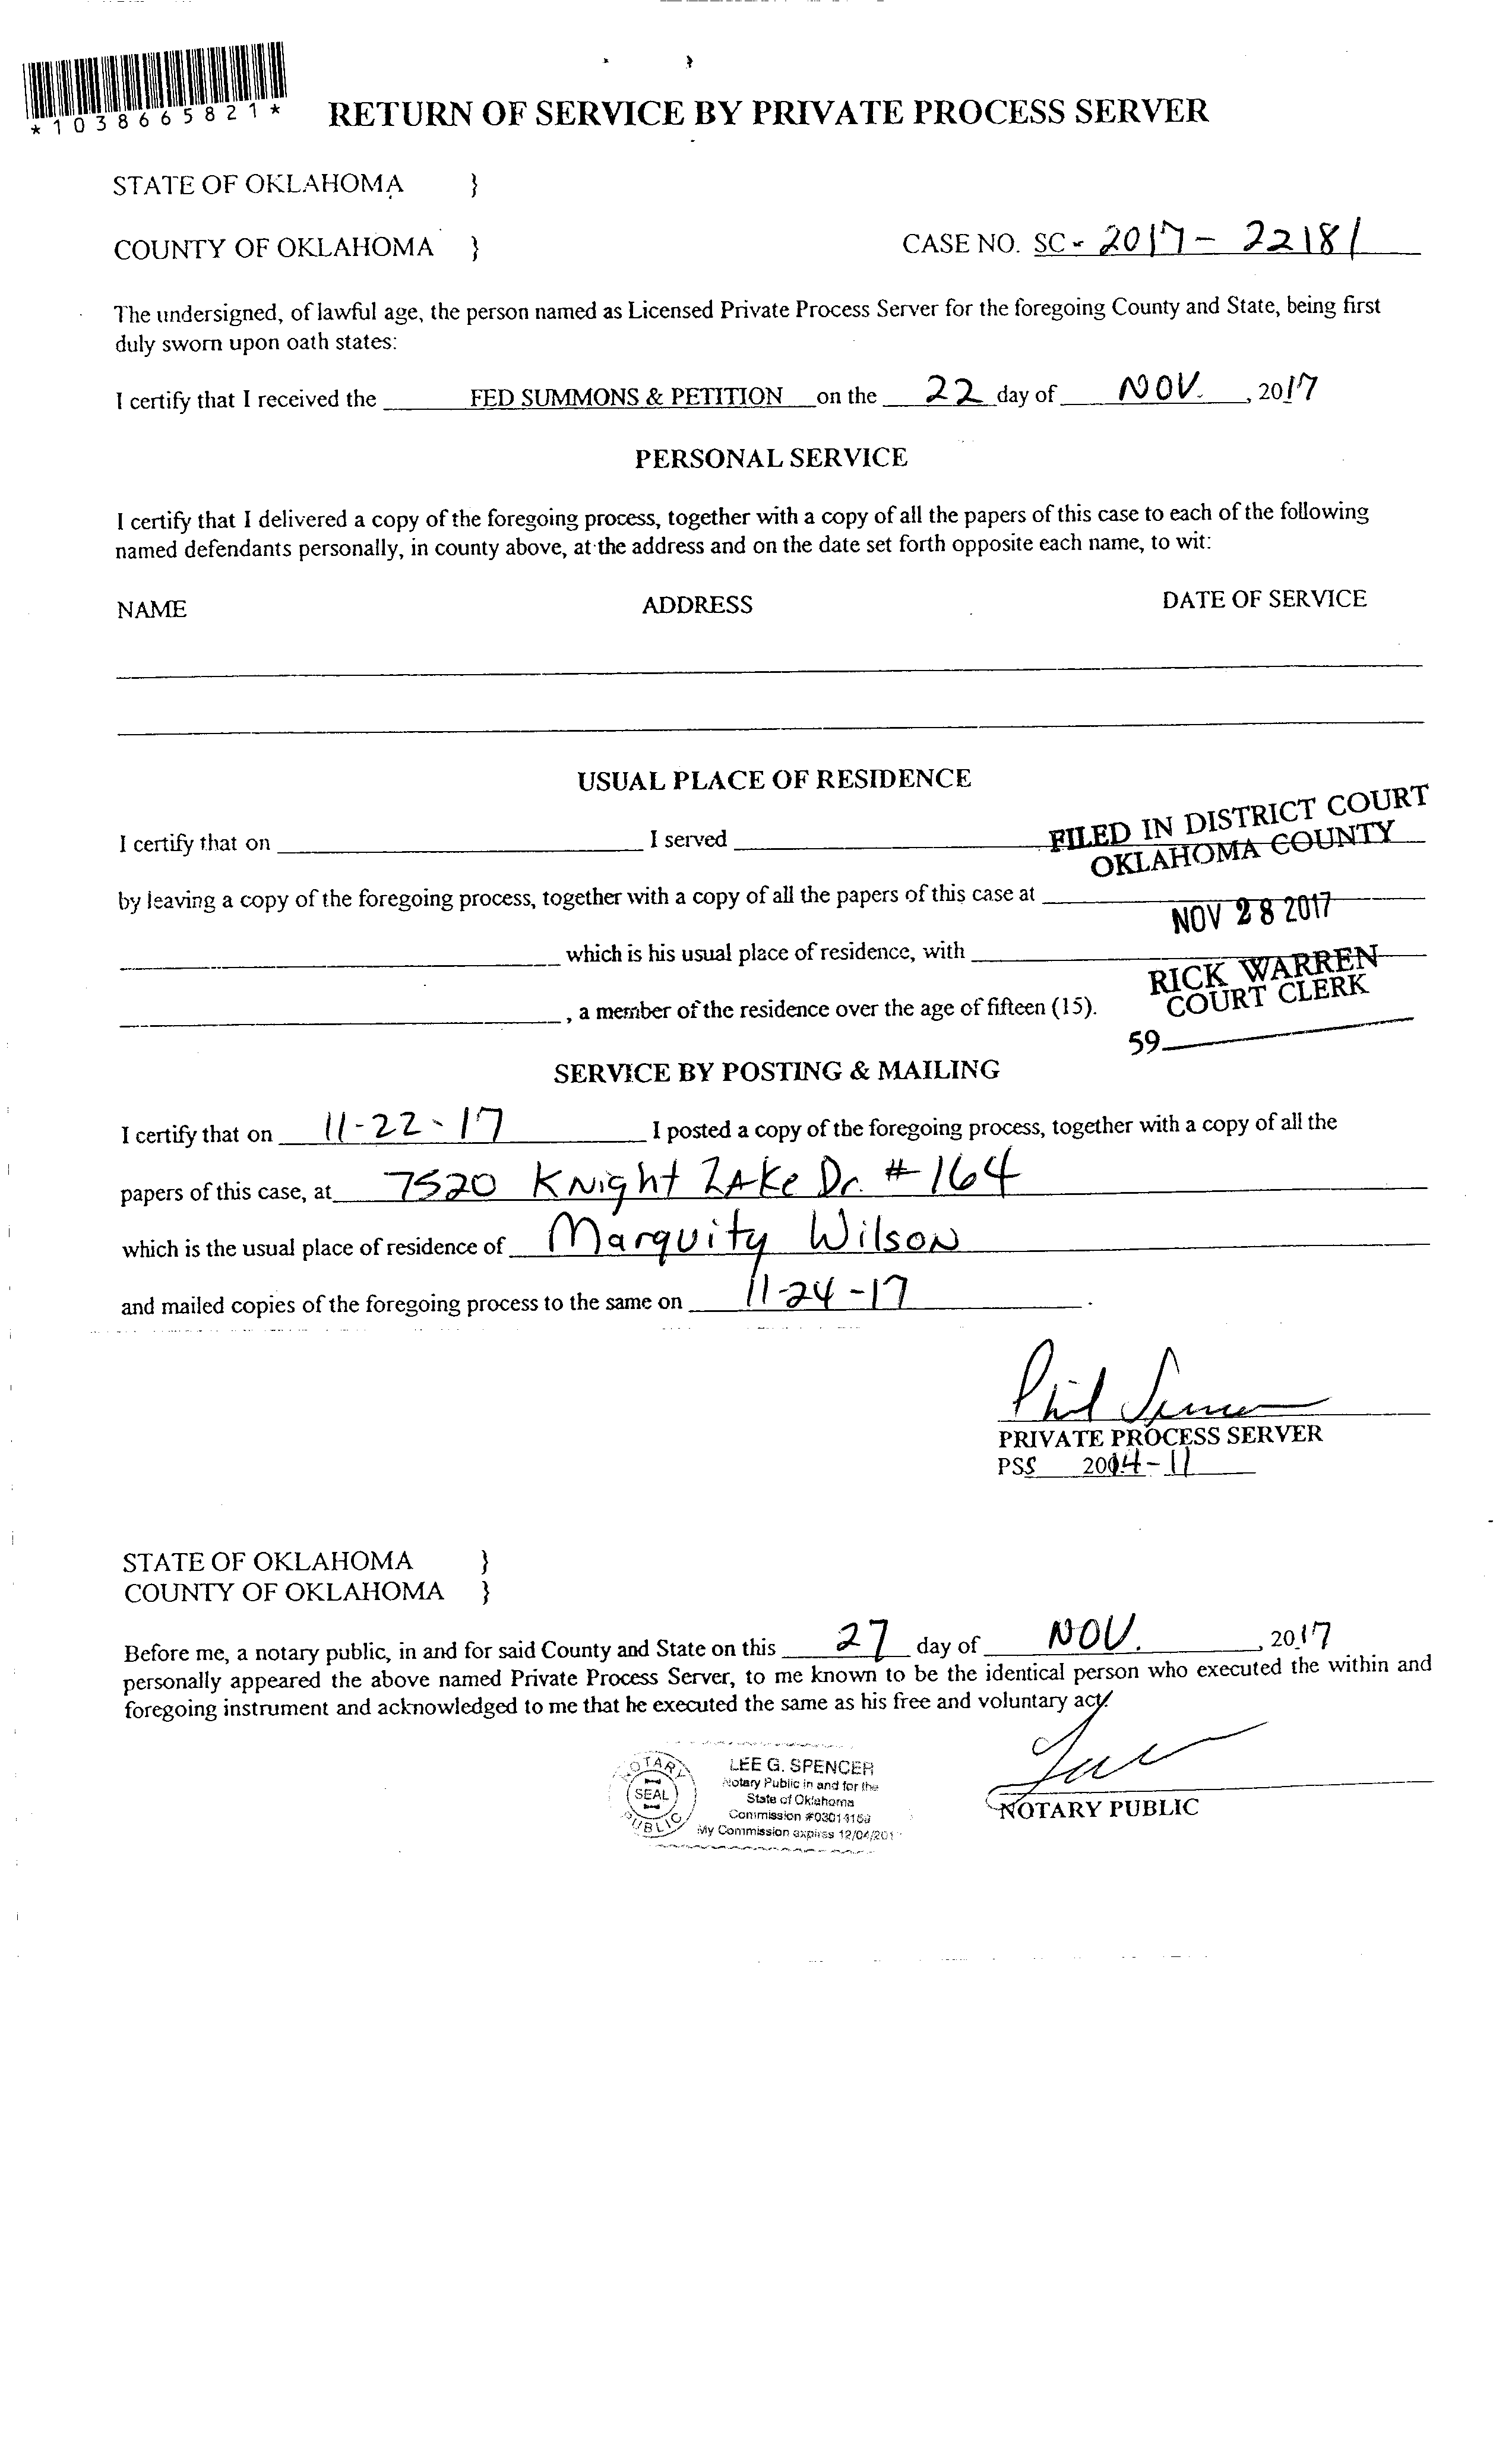 *1038665821*
RETURN OF SERVICE BY PRIVATE PROCESS SERVER
STATE OF OKLAHOMA }
COUNTY OF OKLAHOMA } CASE NO. SC - 2017 - 22181
The undersigned, of lawful age, the person named as Licensed Private Process Server for the foregoing County and State, being first
duly sworn upon oath states:
I certify that I received the FED SUMMONS & PETITION on the 22 day of NOV. , 2017
PERSONAL SERVICE
I certify that I delivered a copy of the foregoing process, together with a copy of all the papers of this case to each of the following
named defendants personally, in county above, at the address and on the date set forth opposite each name, to wit:
NAME ADDRESS DATE OF SERVICE
USUAL PLACE OF RESIDENCE
FILED IN DISTRICT COURT
OKLAHOMA COUNTY
I certify that on I served
by leaving a copy of the foregoing process, together with a copy of all the papers of this case at
NOV 28 2017
which is his usual place of residence, with
RICK WARREN
COURT CLERK
, a member of the residence over the age of fifteen (15).
59
SERVICE BY POSTING & MAILING
I certify that on 11-22-17 I posted a copy of the foregoing process, together with a copy of all the
papers of this case, at 7520 Knight Lake Dr. #164
which is the usual place of residence of Marquity Wilson
and mailed copies of the foregoing process to the same on 11-24-17 .
Phil
PRIVATE PROCESS SERVER
PSS 2004-11
STATE OF OKLAHOMA }
COUNTY OF OKLAHOMA }
Before me, a notary public, in and for said County and State on this 27 day of NOV. , 2017
personally appeared the above named Private Process Server, to me known to be the identical person who executed the within and
foregoing instrument and acknowledged to me that he executed the same as his free and voluntary act.
NOTARY
SEAL
PUBLIC
LEE G. SPENCER
Notary Public in and for the
State of Oklahoma
Commission
My Commission expires
NOTARY PUBLIC